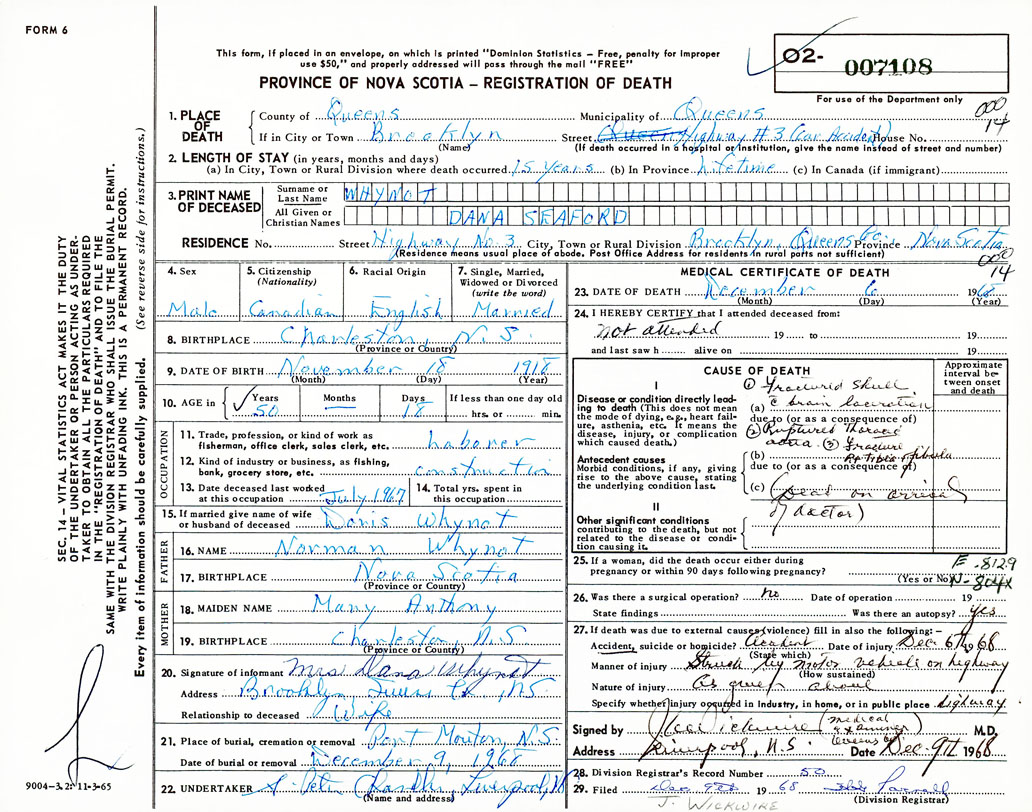 FORM 6
This form, if placed in an envelope, on which is printed "Dominion Statistics – Free, penalty for improper
use $50," and properly addressed will pass through the mail "FREE"
PROVINCE OF NOVA SCOTIA – REGISTRATION OF DEATH
02- 007108
For use of the Department only
000
14
1. PLACE OF DEATH
County of Queens Municipality of Queens
If in City or Town Brooklyn Street Queens Highway #3 (Car Accident) House No.
(Name) (If death occurred in a hospital or institution, give the name instead of street and number)
2. LENGTH OF STAY (in years, months and days)
(a) In City, Town or Rural Division where death occurred 15 years (b) In Province lifetime (c) In Canada (if immigrant)
3. PRINT NAME OF DECEASED
Surname or Last Name WHYNOT
All Given or Christian Names DANA SEAFORD
RESIDENCE No. Street Highway No. 3 City, Town or Rural Division Brooklyn, Queens Co. Province Nova Scotia
(Residence means usual place of abode. Post Office Address for residents in rural parts not sufficient)
000
14
4. Sex Male
5. Citizenship (Nationality) Canadian
6. Racial Origin English
7. Single, Married, Widowed or Divorced (write the word) Married
8. BIRTHPLACE Charleston, N.S.
(Province or Country)
9. DATE OF BIRTH November 18 1918
(Month) (Day) (Year)
10. AGE in Years 50 Months Days 18 If less than one day old
hrs. or min.
OCCUPATION
11. Trade, profession, or kind of work as fisherman, office clerk, sales clerk, etc. labaner
12. Kind of industry or business, as fishing, bank, grocery store, etc. construction
13. Date deceased last worked at this occupation July 1967 14. Total yrs. spent in this occupation
15. If married give name of wife or husband of deceased Doris Whynot
FATHER
16. NAME Norman Whynot
17. BIRTHPLACE Nova Scotia
(Province or Country)
MOTHER
18. MAIDEN NAME Mary Anthony
19. BIRTHPLACE Charleston, N.S.
(Province or Country)
20. Signature of informant Mrs Dana Whynot
Address Brooklyn, Queens Co, N.S.
Relationship to deceased Wife
21. Place of burial, cremation or removal Port Mouton, N.S.
Date of burial or removal December 9, 1968
22. UNDERTAKER Liverpool, N
(Name and address)
MEDICAL CERTIFICATE OF DEATH
23. DATE OF DEATH December 6 1968
(Month) (Day) (Year)
24. I HEREBY CERTIFY that I attended deceased from:
Not attended 19 to 19
and last saw h alive on 19
CAUSE OF DEATH
Approximate interval between onset and death
I
Disease or condition directly leading to death (This does not mean the mode of dying, e.g., heart failure, asthenia, etc. It means the disease, injury, or complication which caused death.)
(1) Fractured skull
(a) c brain laceration
due to (or as a consequence of)
(2) Ruptured Thoracic
aorta (3) Fracture
Antecedent causes
Morbid conditions, if any, giving rise to the above cause, stating the underlying condition last.
(b) Rt Tibia & fibula
due to (or as a consequence of)
(c) (Dead on arrival
of doctor)
II
Other significant conditions
contributing to the death, but not related to the disease or condition causing it.
25. If a woman, did the death occur either during pregnancy or within 90 days following pregnancy?
(Yes or No)
E-8129
N-804X
26. Was there a surgical operation? no Date of operation 19
State findings Was there an autopsy? yes
27. If death was due to external causes (violence) fill in also the following:–
Accident, suicide or homicide? Accident Date of injury Dec 6th 1968
(State which)
Manner of injury Struck by motor vehicle on highway
(How sustained)
Nature of injury As given above
Specify whether injury occurred in Industry, in home, or in public place highway
Signed by Wickwire (medical examiner Queens Co) M.D.
Address Liverpool, N.S. Date Dec. 9th 1968
28. Division Registrar's Record Number 50
29. Filed Dec 9th 1968
(Division Registrar)
J. WICKWIRE
SEC. 14 – VITAL STATISTICS ACT MAKES IT THE DUTY
OF THE UNDERTAKER OR PERSON ACTING AS UNDER-
TAKER TO OBTAIN ALL THE PARTICULARS REQUIRED
IN THE "REGISTRATION OF DEATH" AND TO FILE THE
SAME WITH THE DIVISION REGISTRAR WHO SHALL ISSUE THE BURIAL PERMIT.
WRITE PLAINLY WITH UNFADING INK. THIS IS A PERMANENT RECORD.
Every item of information should be carefully supplied. (See reverse side for instructions.)
9004-3.2: 11-3-65